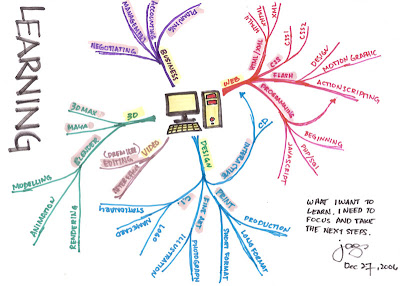 LEARNING
BUSINESS
PLANNING
ACCOUNTING
MANAGEMENT
NEGOTIATING
WEB
HTML/XML
HTML
XML
CSS
CSS1
CSS2
FLASH
DESIGN
MOTION GRAPHIC
ACTIONSCRIPTING
PROGRAMMING
BEGINNING
PHP/SQL
JAVASCRIPT
INTERACTIVE
CD
DESIGN
PRINT
PRODUCTION
LONG FORMAT
SHORT FORMAT
FINE ART
PHOTOGRAPHY
ILLUSTRATION
C.I.
LOGO
NAMECARD
STATIONERY
VIDEO
(PREMIER)
EDITING
3D
3DMAX
MAYA
BLENDER
MODELLING
ANIMATION
RENDERING
WHAT I WANT TO
LEARN. I NEED TO
FOCUS AND TAKE
THE NEXT STEPS.
Dec 27, 2006